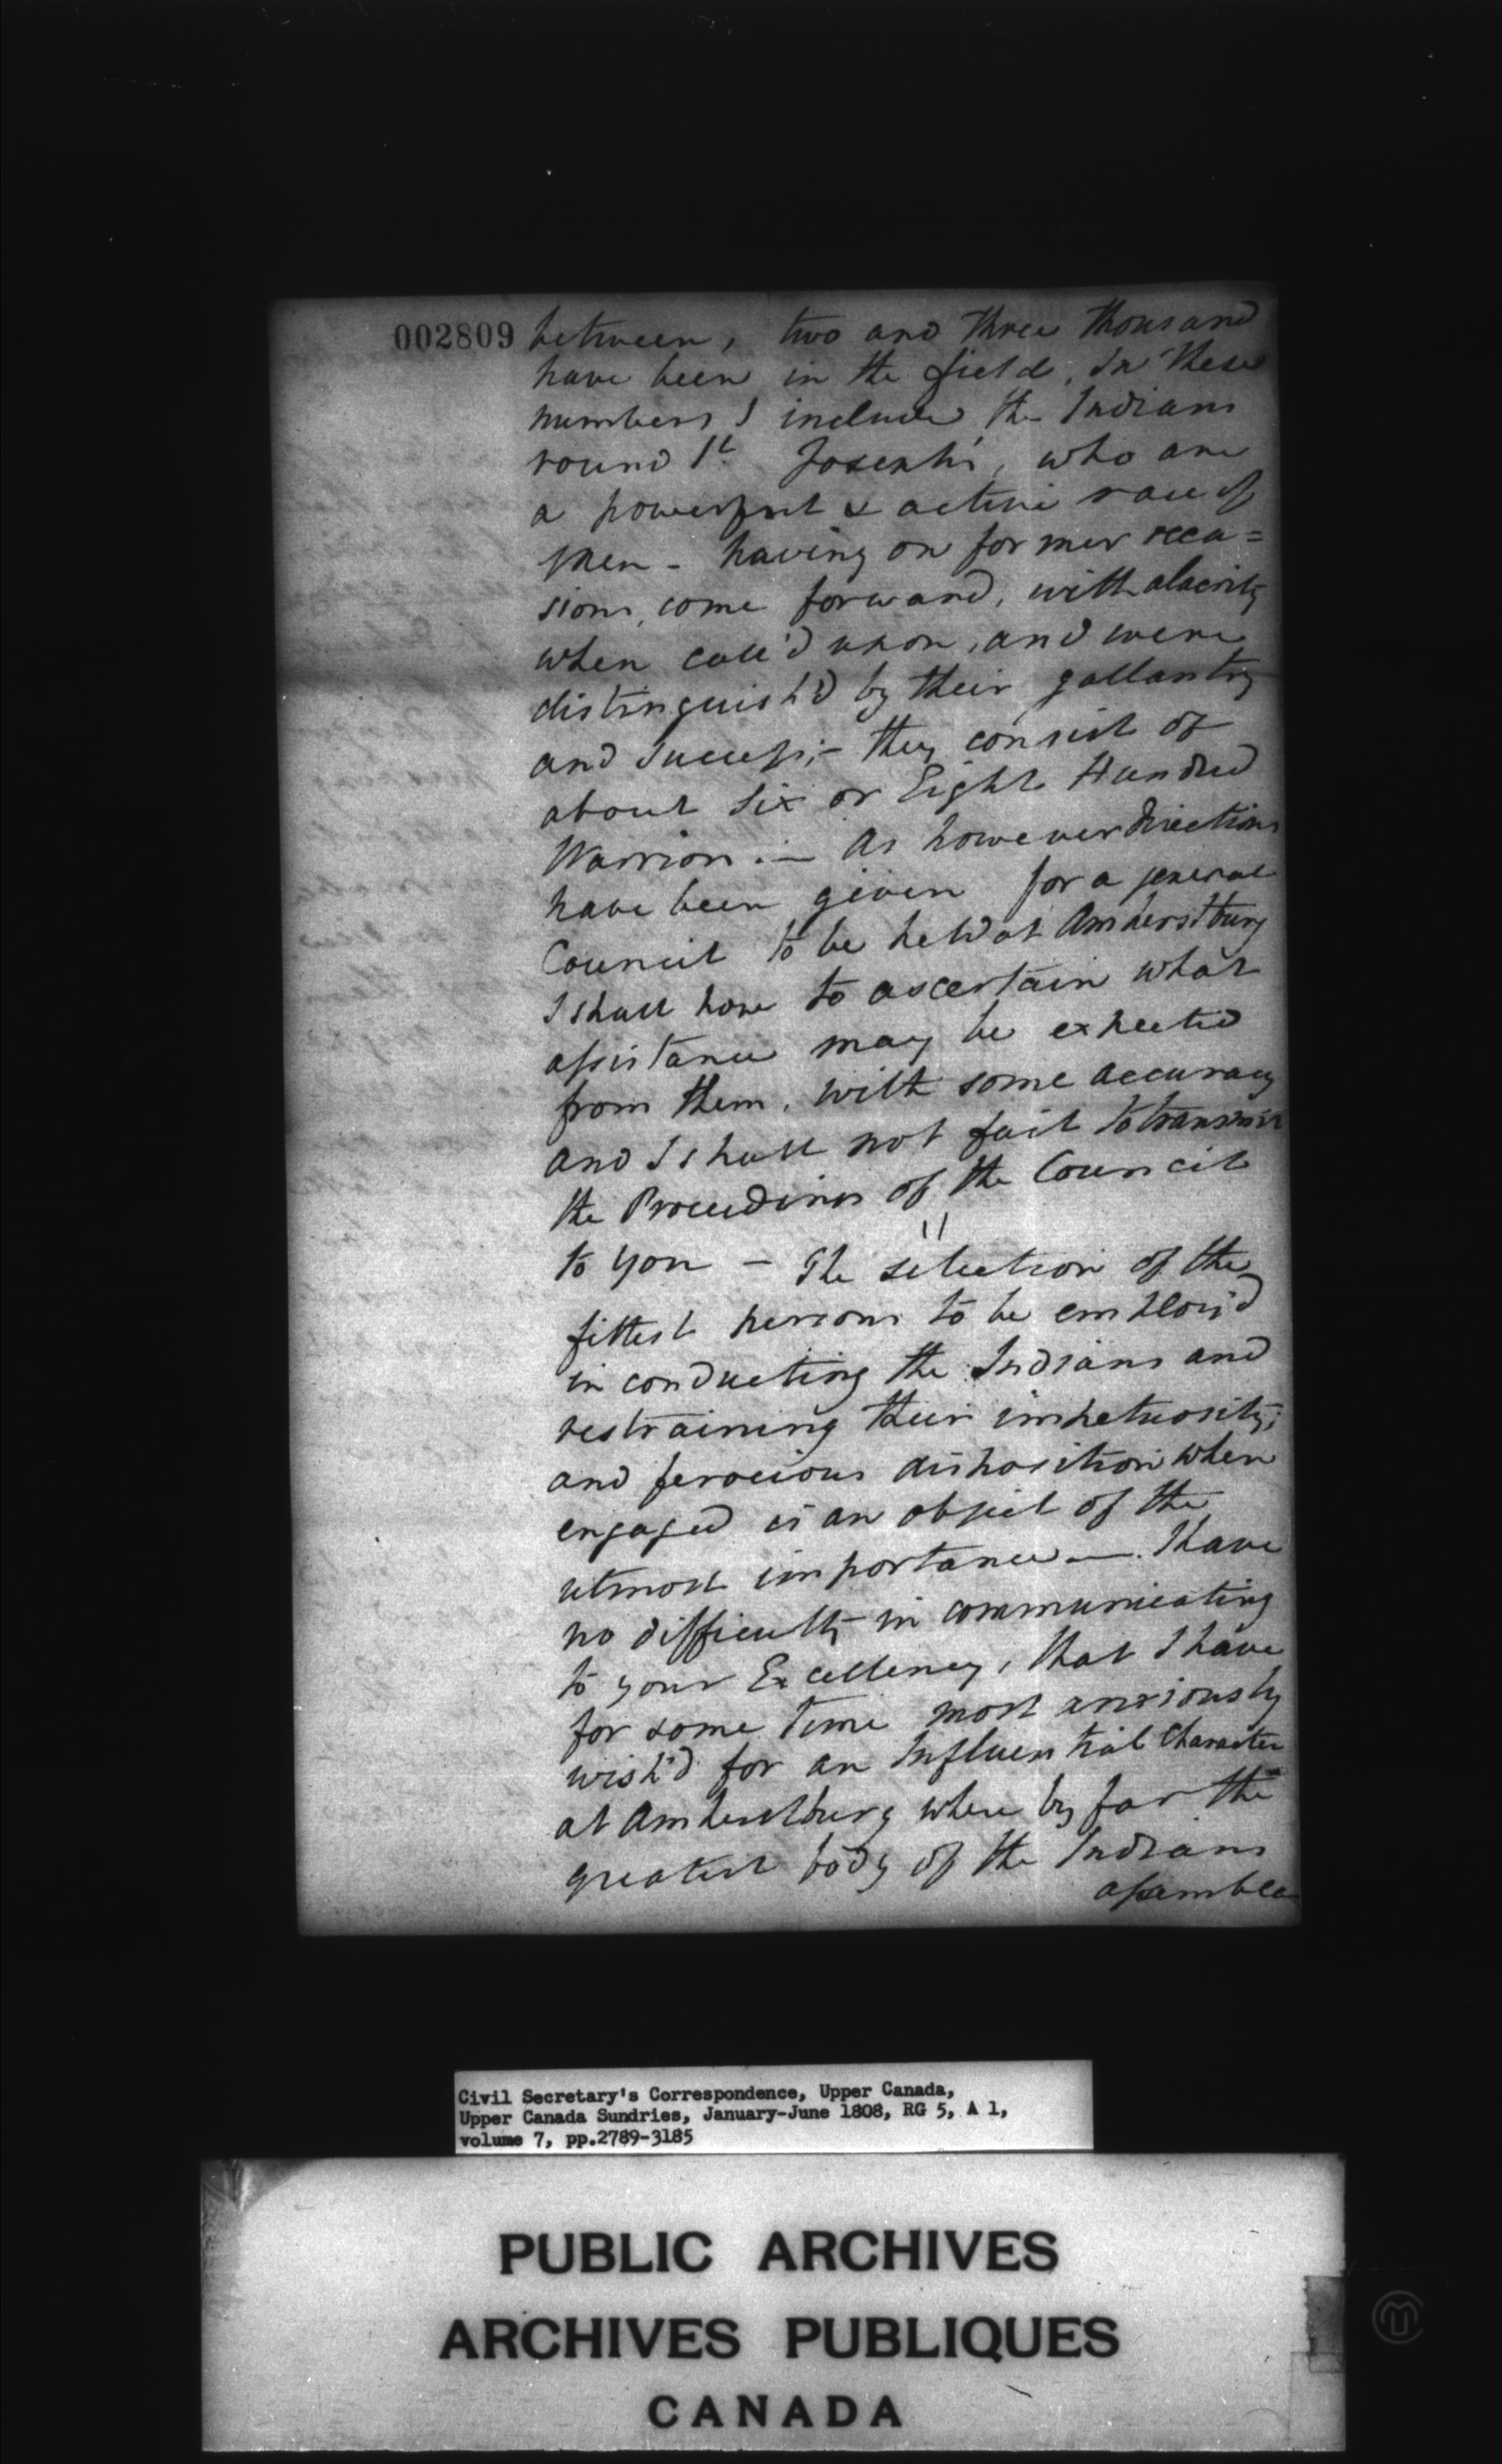 002809 between, two and three thousand
have been in the field, In these
numbers I include the Indians
round St. Joseph's, who are
a powerful & active race of
Men - having on former occa=
sions, come forward, with alacrity
when call'd upon, and were
distinguish'd by their gallantry
and success;- they consist of
about Six or Eight Hundred
Warriors.- As however directions
have been given for a general
Council to be held at Amherstburg
I shall have to ascertain what
assistance may be expected
from them, with some accuracy
and I shall not fail to transmit
the Proceedings of the Council
to you - The selection of the
fittest persons to be employ'd
in conducting the Indians and
restraining their impetuosity;
and ferocious disposition when
engaged is an object of the
utmost importance -. I have
no difficulty in communicating
to your Excellency, that I have
for some time most anxiously
wish'd for an Influential Character
at Amherstburg where by far the
greatest body of the Indians
assemble
Civil Secretary's Correspondence, Upper Canada,
Upper Canada Sundries, January-June 1808, RG 5, A 1,
volume 7, pp.2789-3185
PUBLIC ARCHIVES
ARCHIVES PUBLIQUES
CANADA